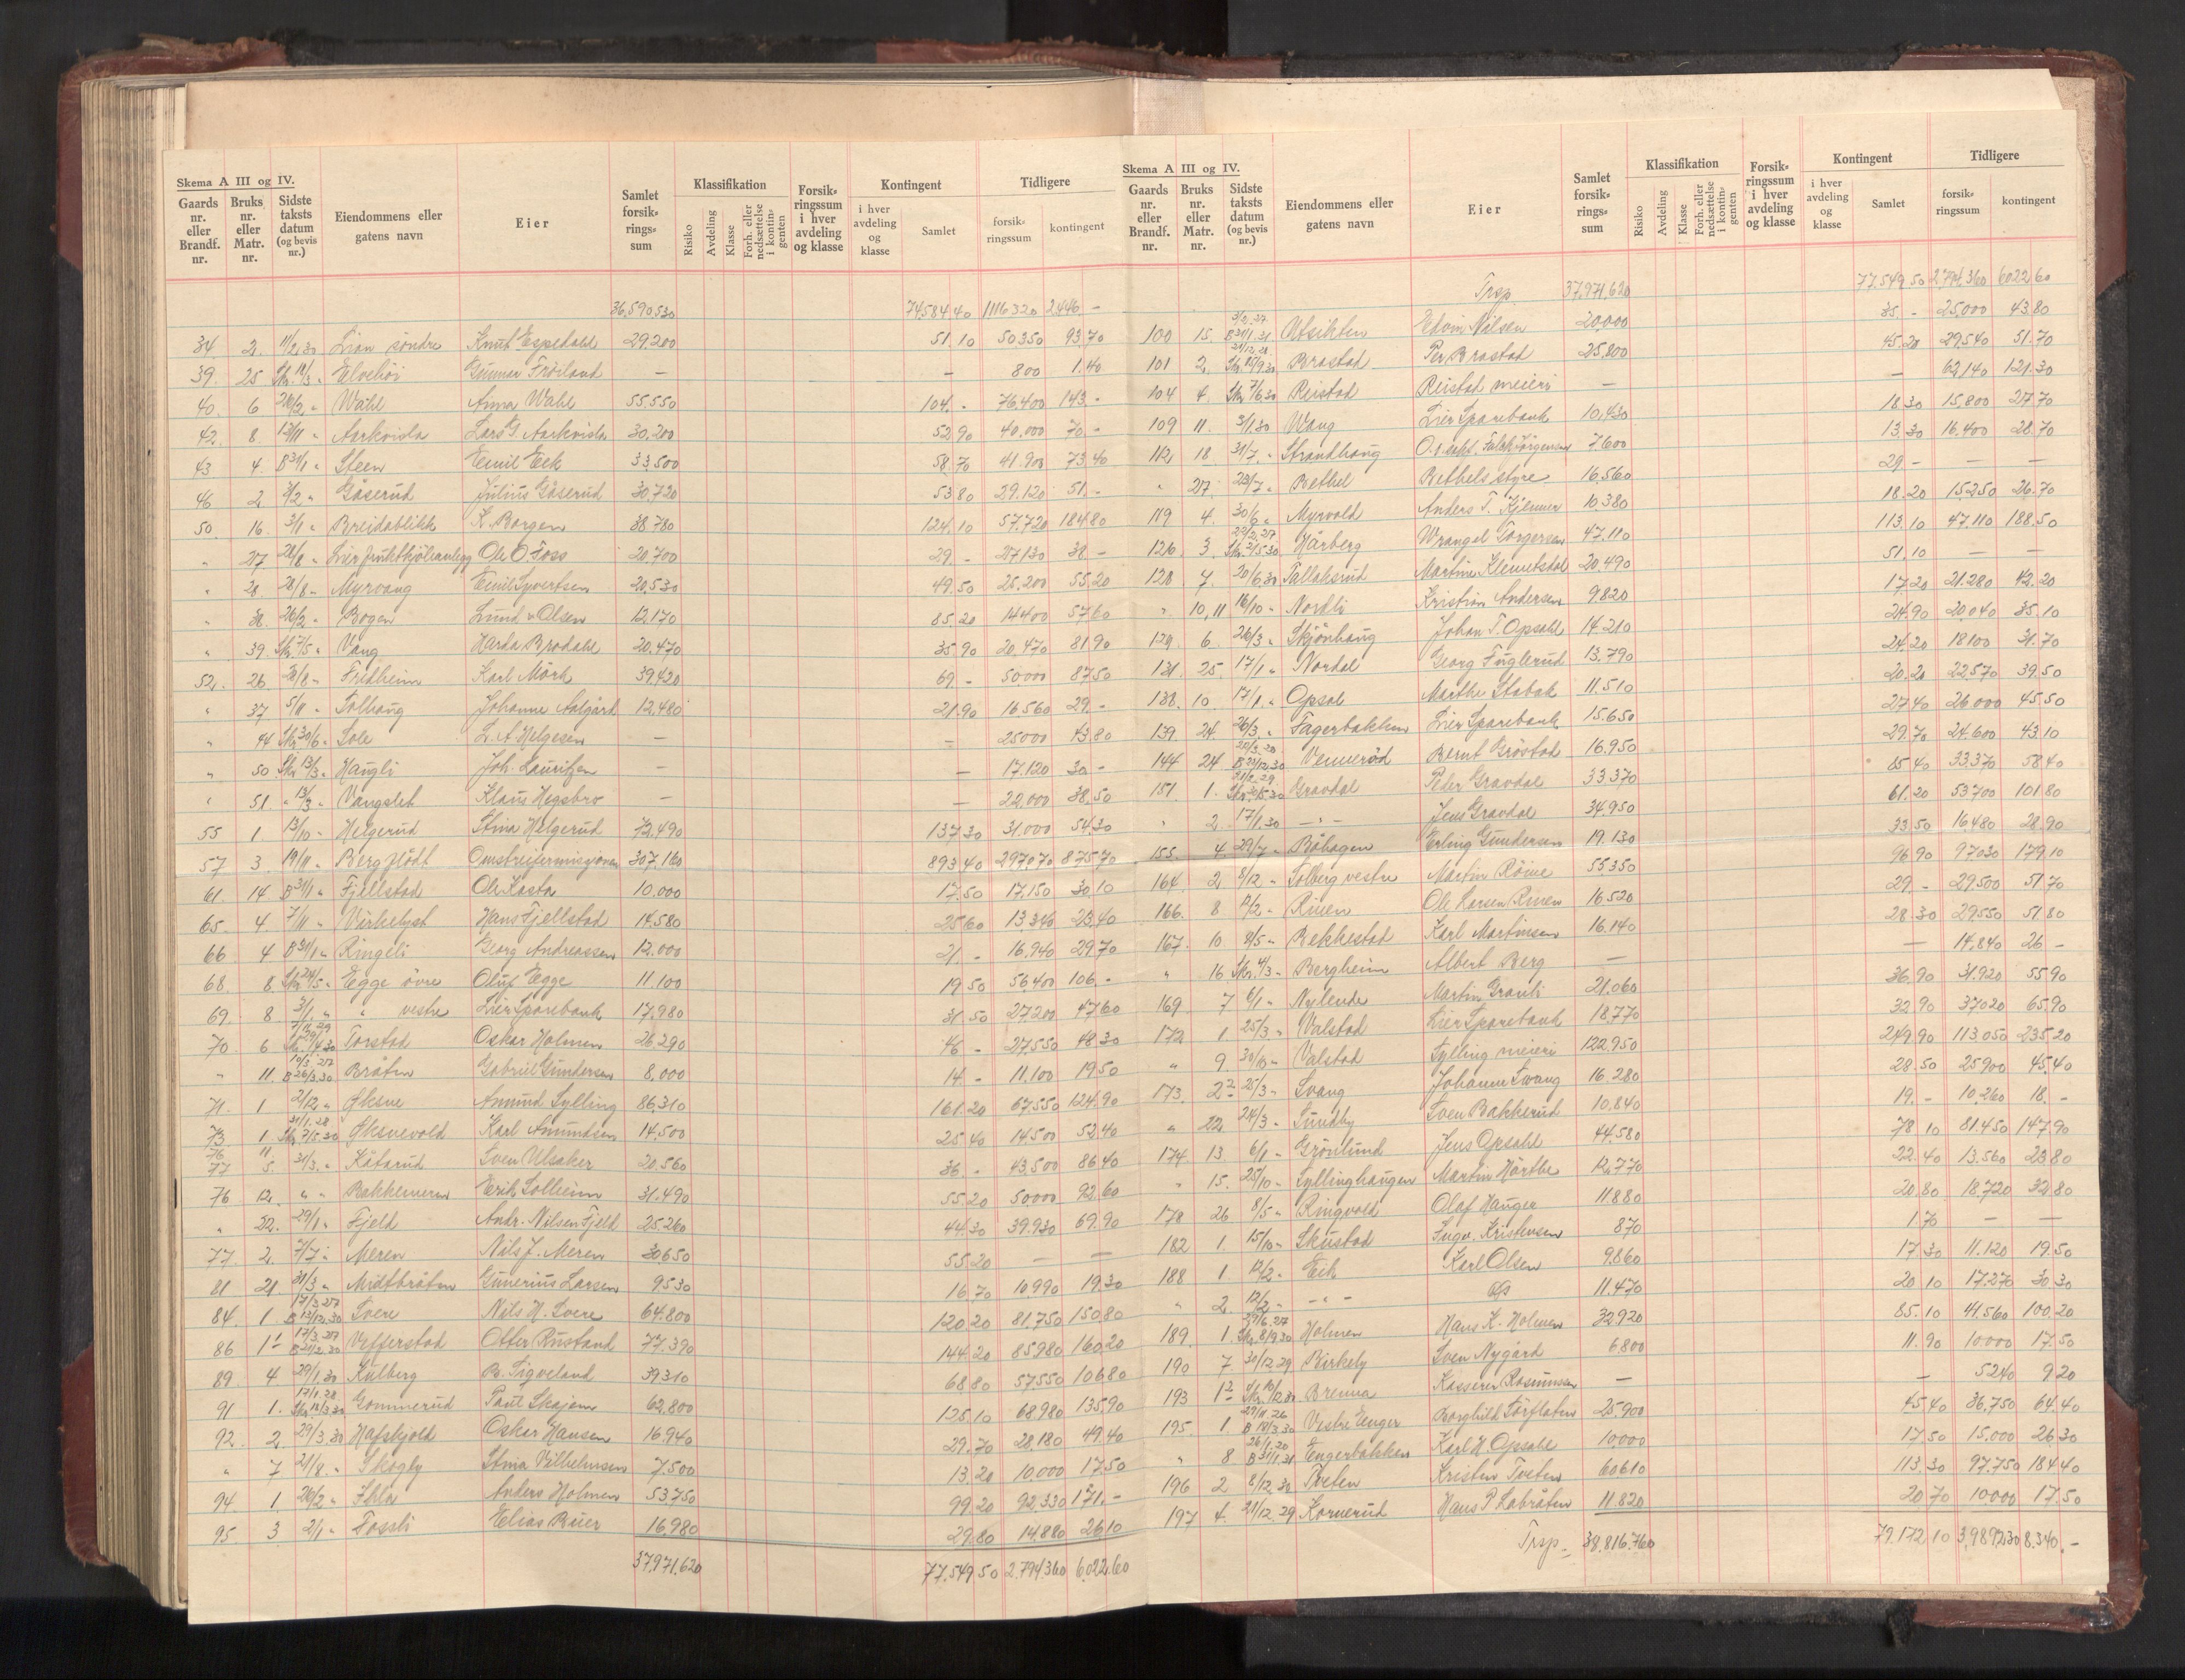 Skema A III og IV.
Gaards nr. eller Brandf. nr. | Bruks nr. eller Matr. nr. | Sidste taksts datum (og bevis nr.) | Eiendommens eller gatens navn | Eier | Samlet forsik-rings-sum | Klassifikation | Risiko | Avdeling | Klasse | Forh. eller nedsættelse i kontin-genten | Forsik-ringssum i hver avdeling og klasse | Kontingent | i hver avdeling og klasse | Samlet | Tidligere | forsik-ringssum | kontingent
36,590,530 74584.40 1116320 2446.-
34 2 11/2.30 Lian söndre Knut Espedahl 29.200 51.10 50350 93.70
39. 25 Elvehöi Gunnar Fröiland — — 800 1.40
40. 6 26/2 " Wahl Anna Wahl 55.550 104.- 76.400 143.-
42. 8. Aarkvisla Lars G. Aarkvisla 30.200 52.90 40.000 70.-
43 4. B 31/1 " Steen Emil Eek 33.500 58.70 41.900 73.40
46 2 3/2 " Göserud Julius Göserud 30.720 53.80 29.120 51.-
50. 16. 3/1 " Breidablikk K. Borgen 38.780 124.10 57.720 184.80
" 27 28/8 " Lier fruktkjöleanlegg Ole O. Foss 20.700 29.- 27.130 38.-
" 28. 28/8 " Myrvang Emil Syvertsen 20.530 49.50 25.200 55.20
" 38. 26/2 " Bogen Lund & Olsen 12.170 85.20 14400 57.60
" 39. Skr 7/5 " Vang Harda Brodahl 20.470 35.90 20.470 81.90
52. 26. Fredheim Karl Mörk 39.420 69.- 50.000 87.50
" 37 5/11 " Solhaug Johanne Aalgård 12.480 21.90 16.560 29.-
" 44 Skr 30/6 " Sole L. A. Helgesen — — 25000 43.80
" 50. Skr 13/3 " Haugli Joh. Lauritzen — — 17.120 30.-
" 51. " 13/3 " Vangslet Klaus Hegsbro — — 22,000 38.50
55 1 13/10 " Helgerud Stina Helgerud 72.490 137.30 31.000 54.30
57. 3. 19/11 " Bergflödt Omstreifermisjonen 307.160 893.40 297.070 875.70
61. 14. B 31/1 " Fjellstad Ole Kasta 10.000 17.50 17.150 30.10
65. 4. 7/11 " Virkelyst Hans Fjellstad 14.580 25.60 13.340 23.40
66. 4. B 31/1 " Ringeli Georg Andreassen 12.000 21.- 16.940 29.70
68. 8. Skr 24/5 " Egge övre Oluf Egge 11.100 19.50 56.400 106.-
69. 8 3/1 " " vestre Lier Sparebank 17.980 31.50 27.200 47.60
70. 6 Torstad Oskar Holmen 26.290 46.- 27.550 48.30
" 11. 10/3.27 B 26/3.30 Bråten Gabriel Gundersen 8.000 14.- 11.100 19.50
71. 1 2/12 " Öksne Amund Sylling 86.310 161.20 67.550 124.90
73. 1. 31/1.28 Skr 7/5.30 Öksnevold Karl Amundsen 14.500 25.40 14.500 52.40
76 77 11. 5. 31/3 " Kåtarud Sven Ulsaker 20.560 36.- 43.500 86.40
76 12. " " Bakkemeren Erik Solheim 31.490 55.20 50.000 92.60
" 22. 29/1 " Fjeld Andr. Nilsen Fjeld 25.260 44.30 39.930 69.90
77. 2. 7/7 " Meren Nils J. Meren 30.650 55.20 — —
81 21 31/3 " Midtbråten Gunerius Larsen 9530 16.70 10.990 19.30
84. 1. 17/3.27 B 13/12.30 Svere Nils H. Svere 64.800 120.20 81.750 150.80
86 1¹ 17/3.27 B 21/2.30 Vefferstad Otter Rustand 77.390 144.20 85980 160.20
89. 4 29/1.30 Kulberg B. Tigveland 39310 68.80 57550 106.80
91 1. 17/1.28 Skr 12/3.30 Gommerud Paul Skajem 62,800 125.10 68.980 135.90
92. 2. 29/3.30 Hafskjold Oskar Hansen 16.940 29.70 28.180 49.40
" 7 21/8 " Skogly Stina Vilhelmsen 7.500 13.20 10.000 17.50
94 1. 26/2 " Ihla Anders Holmen 53.750 99.20 92.330 171.-
95 3 2/1 " Fossli Elias Ruer 16.980 29.80 14.880 26.10
37.971.620 77.549.50 2.794.360 6022.60
Skema A III og IV.
Gaards nr. eller Brandf. nr. | Bruks nr. eller Matr. nr. | Sidste taksts datum (og bevis nr.) | Eiendommens eller gatens navn | Eier | Samlet forsik-rings-sum | Klassifikation | Risiko | Avdeling | Klasse | Forh. eller nedsættelse i kontin-genten | Forsik-ringssum i hver avdeling og klasse | Kontingent | i hver avdeling og klasse | Samlet | Tidligere | forsik-ringssum | kontingent
Trsp. 37,971,620 77.549.50 2.794.360 6022.60
100 15. B 31/1.31 Utsikten Edvin Nilsen 20.000 35.- 25.000 43.80
101 2. Brastad Per Brastad 25.800 45.20 29540 51.70
104 4. Skr 7/6.30 Reistad Reistad meieri — — 62.140 121.30
109 11. 3/1.30 Wang Lier Sparebank 10.430 18.30 15,800 27.70
112 18. 31/7 " Strandhaug Falck Jörgensen 7.600 13.30 16.400 28.70
" 27. 23/7 " Bethel Bethels styre 16.560 29.- — —
119 4. 30/6 " Myrvold Anders T. Kjemner 10.380 18.20 15.250 26.70
126. 3. Hårberg Wrangel Torgersen 47.110 113.10 47.110 188.50
128 7. 20/6.30 Tallaksrud Martine Klemetsdal 20.490 51.10 — —
" 10,11 16/10 " Nordli Kristian Andersen 9.820 17.20 21.280 42.20
129. 6. 26/3 " Skjönhaug Johan T. Opsahl 14.210 24.90 20.040 35.10
131. 25. 17/1 " Nordal Georg Fuglerud 13.790 24.20 18100 31.70
138. 10. 17/1 " Opsal Marthe Stabak 11.510 20.20 22.570 39.50
139. 24. 26/3 " Fagerbakken Lier Sparebank 15.650 27.40 26.000 45.50
144 24 B 23/12.30 Venneröd Bernt Gröstad 16.950 29.70 24.600 43.10
151. 1. Gravdal Peter Gravdal 33.370 85.40 33.370 58.40
" 2. 17/1.30 — " — Jens Gravdal 34.950 61.20 53.700 101.80
155. 4. 29/7 " Råhagen Erling Gundersen 19.130 33.50 16.480 28.90
164. 2 8/12 " Solberg vestre Martin Röine 55350 96.90 97.030 179.10
166. 8 12/2 " Ruen Ole Larsen Ruen 16.520 29.- 29.500 51.70
167. 10 8/5 " Rekkestad Karl Martinsen 16.140 28.30 29550 51.80
" 16 Skr 4/3 " Bergheim Albert Berg — — 14.840 26.-
169 7 6/1 " Nylende Martin Granli 21.060 36.90 31.920 55.90
172 1 25/3 " Valstad Lier Sparebank 18.770 32.90 37020 65.90
" 9. 30/10 " Valstad Sylling meieri 122.950 249.90 113.050 235.20
173. 2² 25/3 " Svang Johanne Svang 16.280 28.50 25900 45.40
" 22. 24/3 " Sundby Sven Bakkerud 10.840 19.- 10.260 18.-
174. 13 6/1 " Grönlund Jens Opsahl 44.580 78.10 81.450 147.90
" 15. 25/10 " Syllinghaugen Martin Hörthe 12.770 22.40 13.560 23.80
178 26 8/5 " Ringvold Olaf Hauger 11880 20.80 18.720 32.80
182 1. 15/10 " Skustad Ingv. Kristensen 870 1.70 — —
188 1 12/2 " Eik Karl Olsen 9.860 17.30 11.120 19.50
" 2. 12/2 " — " — 11.470 20.10 17.270 30.30
189. 1. 29/6.27 Skr 8/9.30 Holmen Hans K. Holmen 32920 85.10 44.560 100.20
190 7 30/12.29 Birkely Sven Nygård 6.800 11.90 10.000 17.50
193 1² Brenna Kasserer Rasmussen — — 5240 9.20
195. 1 29/11.26 B 18/3.30 Vestre Enger Borghild Torflaten 25.900 45.40 36,750 64.40
" 8. B 31/1.31 Engerbakken Karl H. Opsahl 10.000 17.50 15.000 26.30
196 2 8/12.30 Tveten Kristen Tveten 60610 113.30 97.750 184.40
197 4. 21/12.29 Kornerud Hans P. Labråten 11.820 20.70 10.000 17.50
Trsp. 38,816.760 79.172.10 3,989230 8.340.-